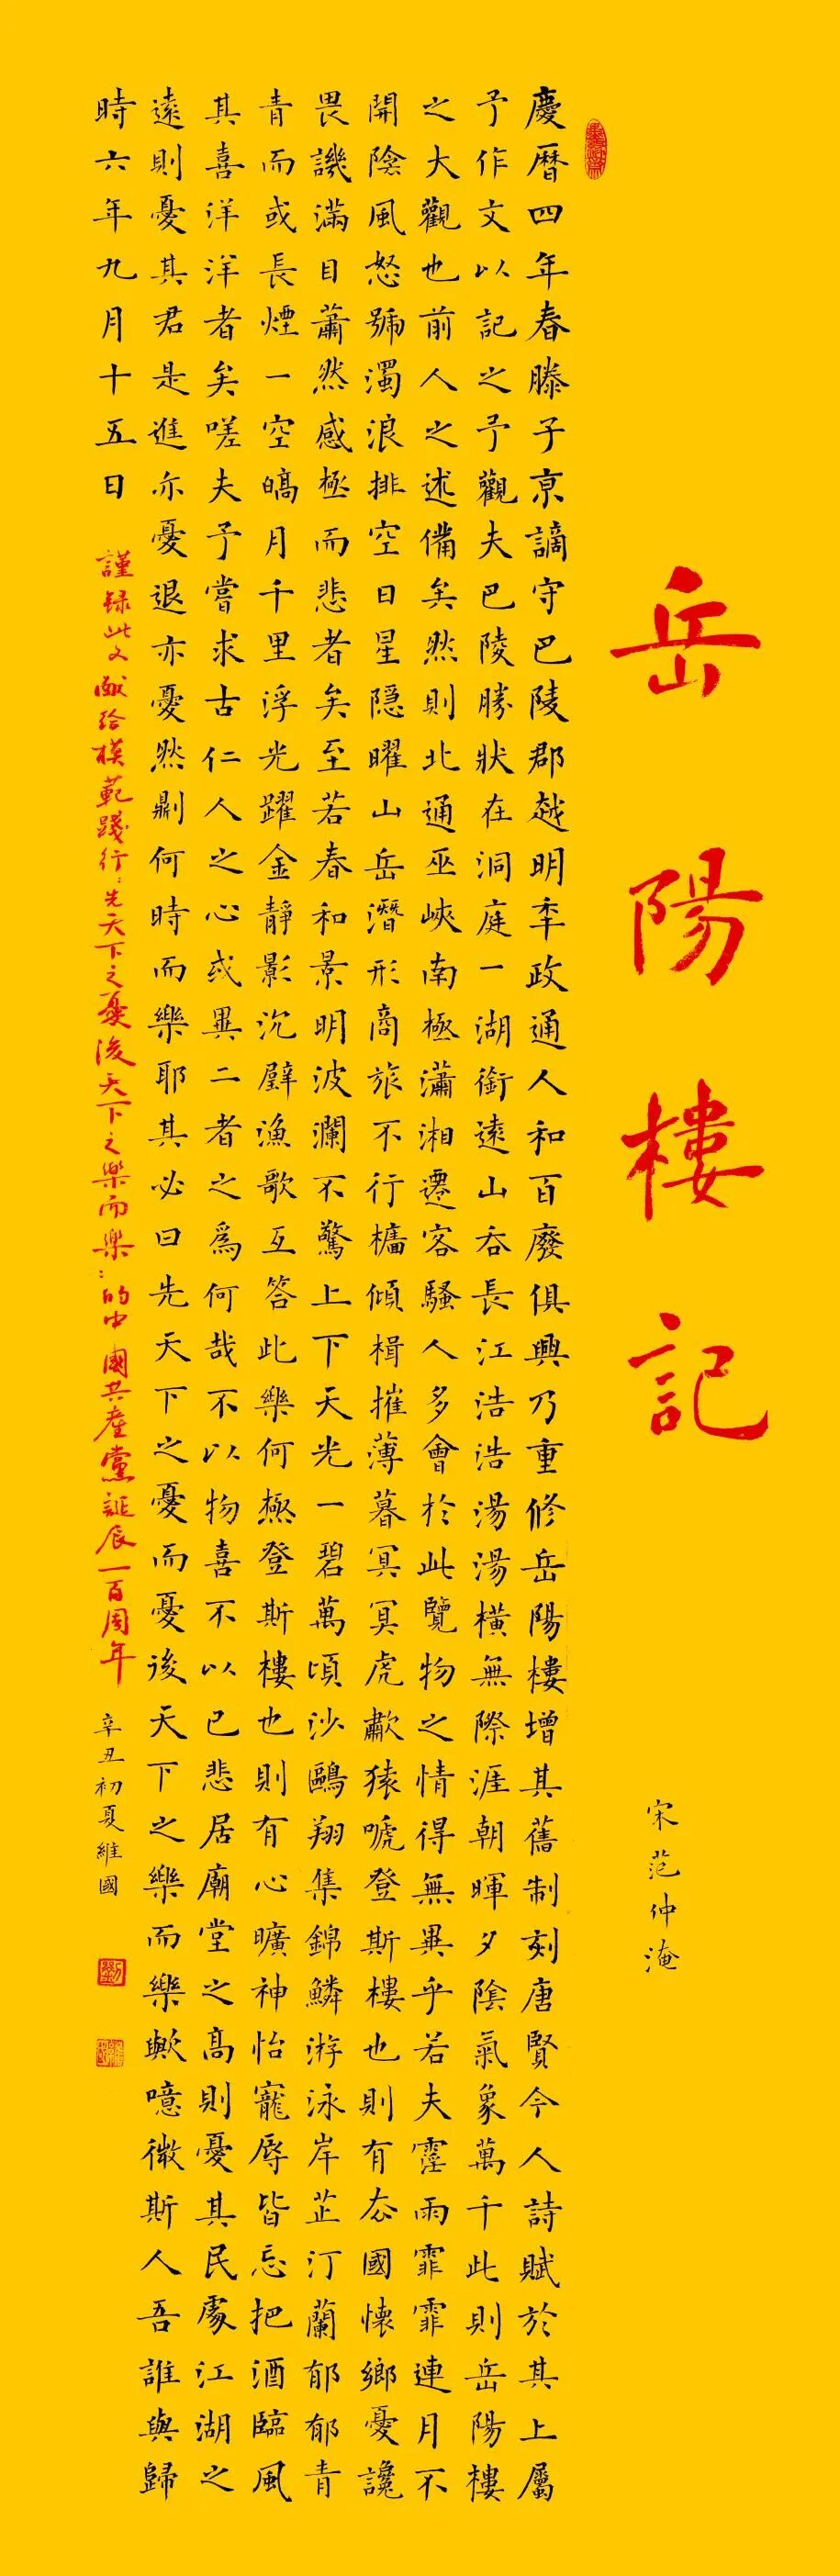 岳陽樓記
宋范仲淹
慶曆四年春滕子京謫守巴陵郡越明年政通人和百廢俱興乃重修岳陽樓增其舊制刻唐賢今人詩賦於其上屬
予作文以記之予觀夫巴陵勝狀在洞庭一湖銜遠山吞長江浩浩湯湯橫無際涯朝暉夕陰氣象萬千此則岳陽樓
之大觀也前人之述備矣然則北通巫峽南極瀟湘遷客騷人多會於此覽物之情得無異乎若夫霪雨霏霏連月不
開陰風怒號濁浪排空日星隱曜山岳潛形商旅不行檣傾楫摧薄暮冥冥虎嘯猿啼登斯樓也則有去國懷鄉憂讒
畏譏滿目蕭然感極而悲者矣至若春和景明波瀾不驚上下天光一碧萬頃沙鷗翔集錦鱗游泳岸芷汀蘭郁郁青
青而或長煙一空皜月千里浮光躍金靜影沉璧漁歌互答此樂何極登斯樓也則有心曠神怡寵辱皆忘把酒臨風
其喜洋洋者矣嗟夫予嘗求古仁人之心或異二者之為何哉不以物喜不以己悲居廟堂之高則憂其民處江湖之
遠則憂其君是進亦憂退亦憂然則何時而樂耶其必曰先天下之憂而憂後天下之樂而樂歟噫微斯人吾誰與歸
時六年九月十五日
謹録此文献给模範踐行:先天下之憂後天下之樂而樂:的中國共產黨誕辰一百周年
辛丑初夏維國